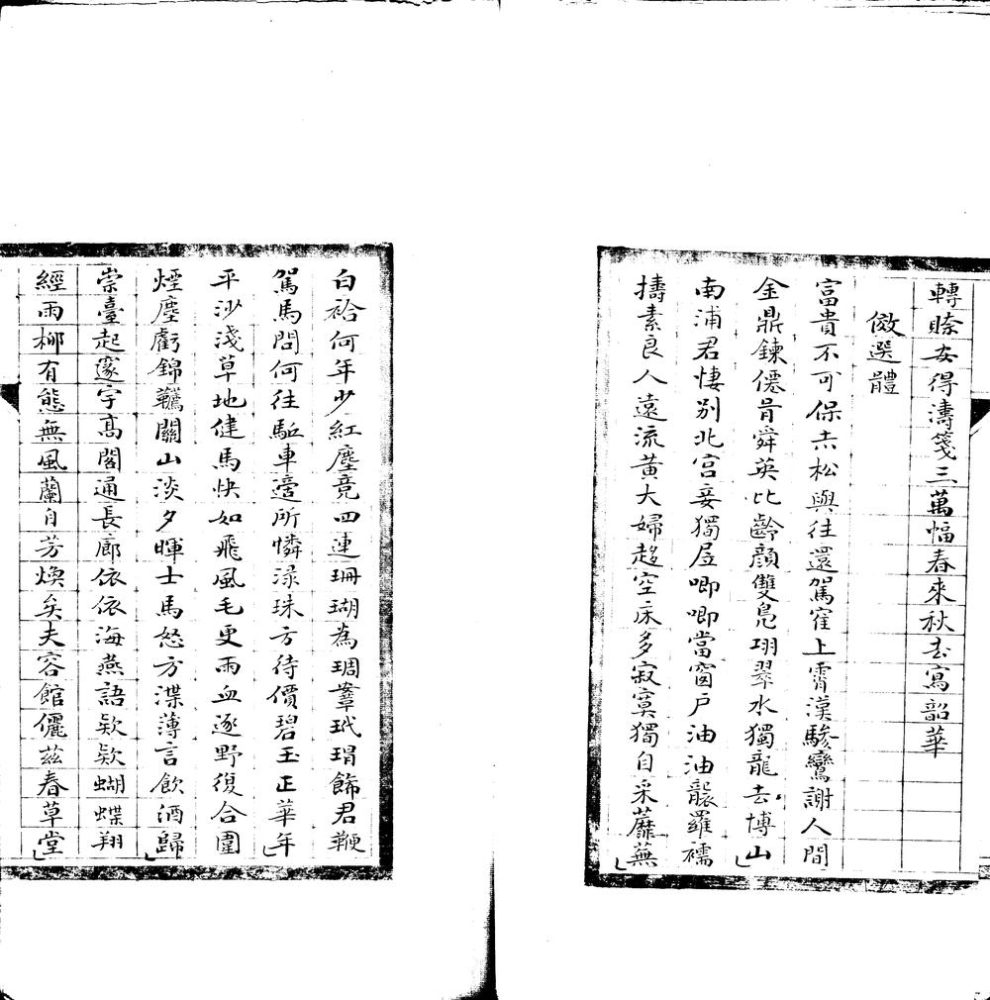 轉賒安得濤箋三萬幅春來秋去寫韶華
倣選體
富貴不可保赤松與往還駕寉上霄漢驂鸞謝人間
金鼎鍊僊骨舜英比齡顏雙鳧翊翠水獨龍去博山
南浦君悽別北宮妾獨居唧唧當窗戶油油襲羅襦
擣素良人遠流黃大婦趍空床多寂寞獨自采蘼蕪
白袷何年少紅塵竟四連珊瑚為琱鞌玳瑁餙君鞭
駕馬問何往駈車適所憐淥珠方待價碧玉正華年
平沙淺草地健馬快如飛風毛更雨血逐野復合圍
煙塵虧錦韉關山淡夕暉士馬怒方渫薄言飲酒歸
崇臺起邃宇高閣通長廊依依海燕語欵欵蝴蝶翔
經雨柳有態無風蘭自芳煥矣夫容館儷茲春草堂